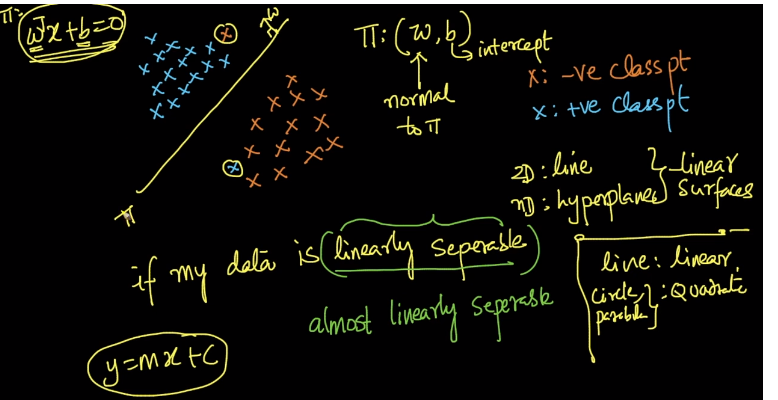 π:
wᵀx+b=0
w
π: (w, b)
intercept
normal
to π
x: -ve class pt
x: +ve class pt
2D: line
nD: hyperplanes
linear
surfaces
π
if my data is (linearly seperable)
almost linearly seperable
line: linear
circle,
parabola
: Quadratic
y=mx+c